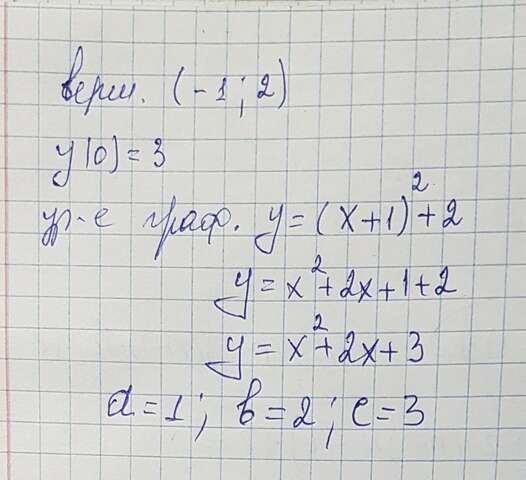 верш. (-1; 2)
y(0)=3
ур-е граф. y=(x+1)²+2
y=x²+2x+1+2
y=x²+2x+3
a=1; b=2; c=3